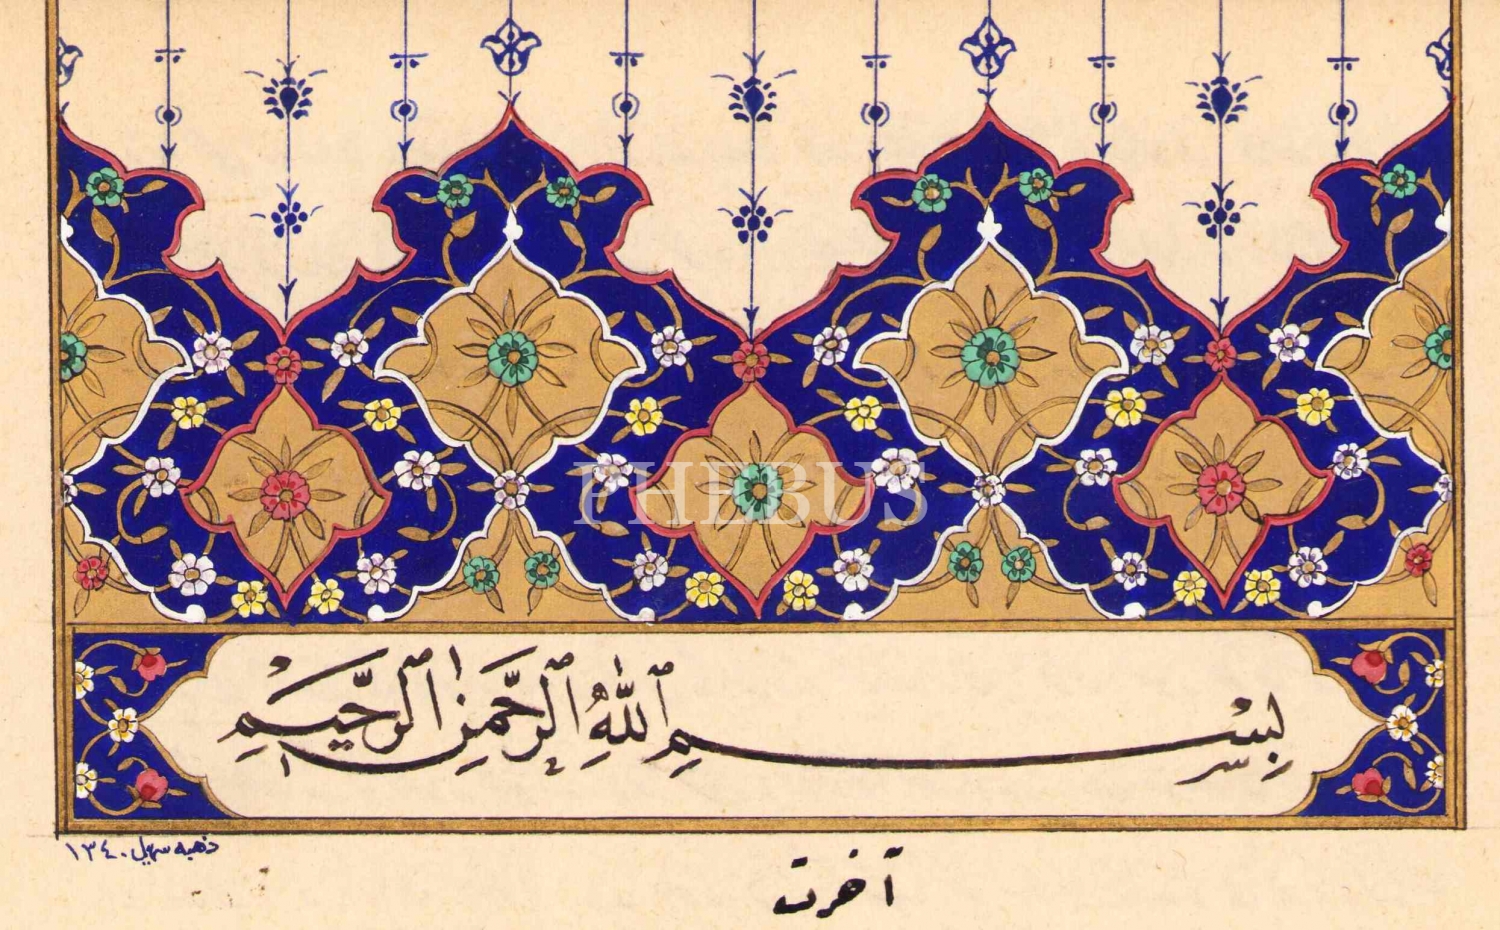 PHEBUS
بِسْمِ ٱللّٰهِ ٱلرَّحْمٰنِ ٱلرَّحِيمِ
ذهبه سهيل ١٣٤٠
آخرت